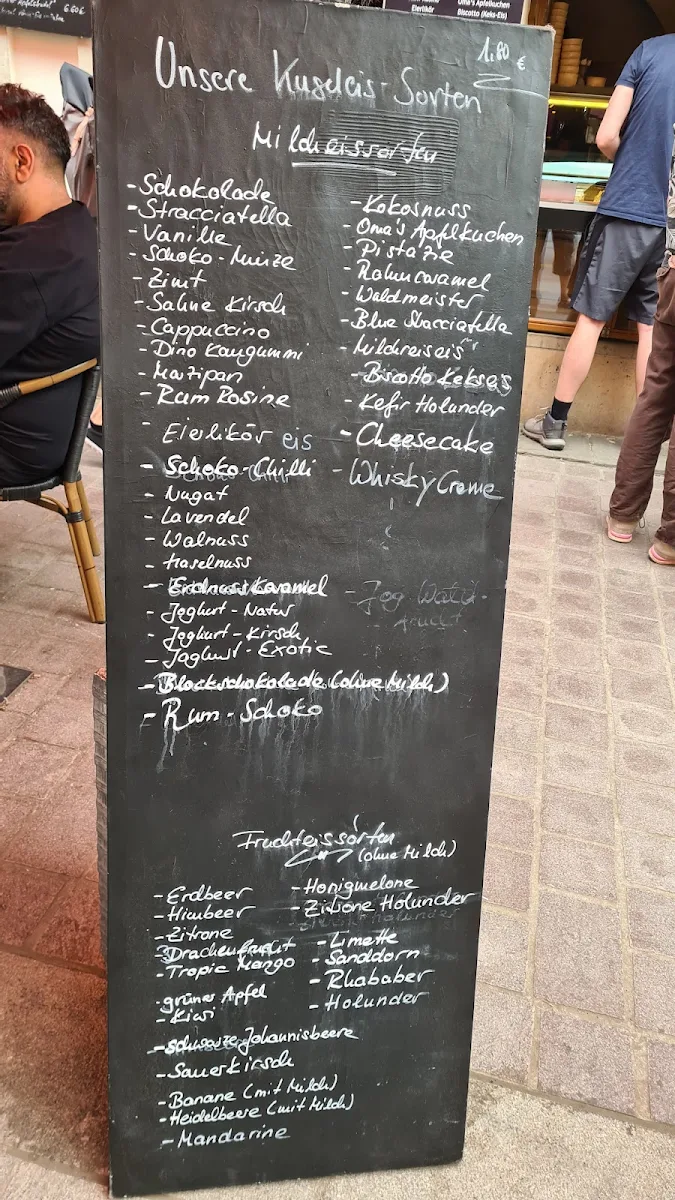 6 60 €
Eierlikör
Oma's Apfelkuchen
Biscotto (Keks-Eis)
1,80 €
Unsere Kugeleis-Sorten
Milcheissorten
- Schokolade
- Stracciatella
- Vanille
- Schoko-Minze
- Zimt
- Sahne Kirsch
- Cappuccino
- Dino Kaugummi
- Mazipan
- Rum Rosine
- Eierlikör eis
- Schoko-Chilli
- Nugat
- Lavendel
- Walnuss
- Haselnuss
- Erdnuss Karamel
- Joghurt-Natur
- Joghurt-Kirsch
- Joghurt-Exotic
- Blockschokolade (ohne Milch)
- Rum-Schoko
- Kokosnuss
- Oma's Apflkuchen
- Pistazie
- Rahmcaramel
- Waldmeister
- Blue Stracciatella
- Milchreiseis
- Biscotto Kekseis
- Kefir Holunder
- Cheesecake
- Whisky Creme
- Jog Wald-
frucht
Fruchteissorten
(ohne Milch)
- Erdbeer
- Himbeer
- Zitrone
- Drachenfrucht
- Tropic Mango
- grüner Apfel
- Kiwi
- schwarze Johannisbeere
- Sauerkirsch
- Banane (mit Milch)
- Heidelbeere (mit Milch)
- Mandarine
- Honigmelone
- Zitrone Holunder
- Limette
- Sanddorn
- Rhababer
- Holunder